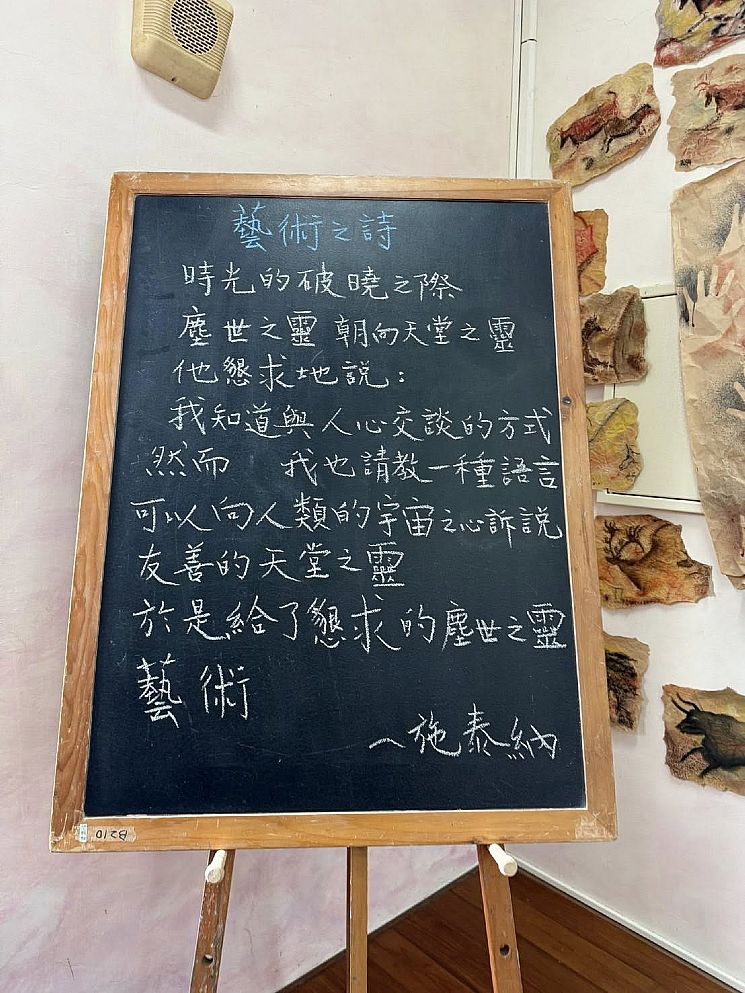 藝術之詩
時光的破曉之際
塵世之靈 朝向天堂之靈
他懇求地說:
我知道與人心交談的方式
然而 我也請教一種語言
可以向人類的宇宙之心訴說
友善的天堂之靈
於是給了懇求的塵世之靈
藝術
~施泰納
B210